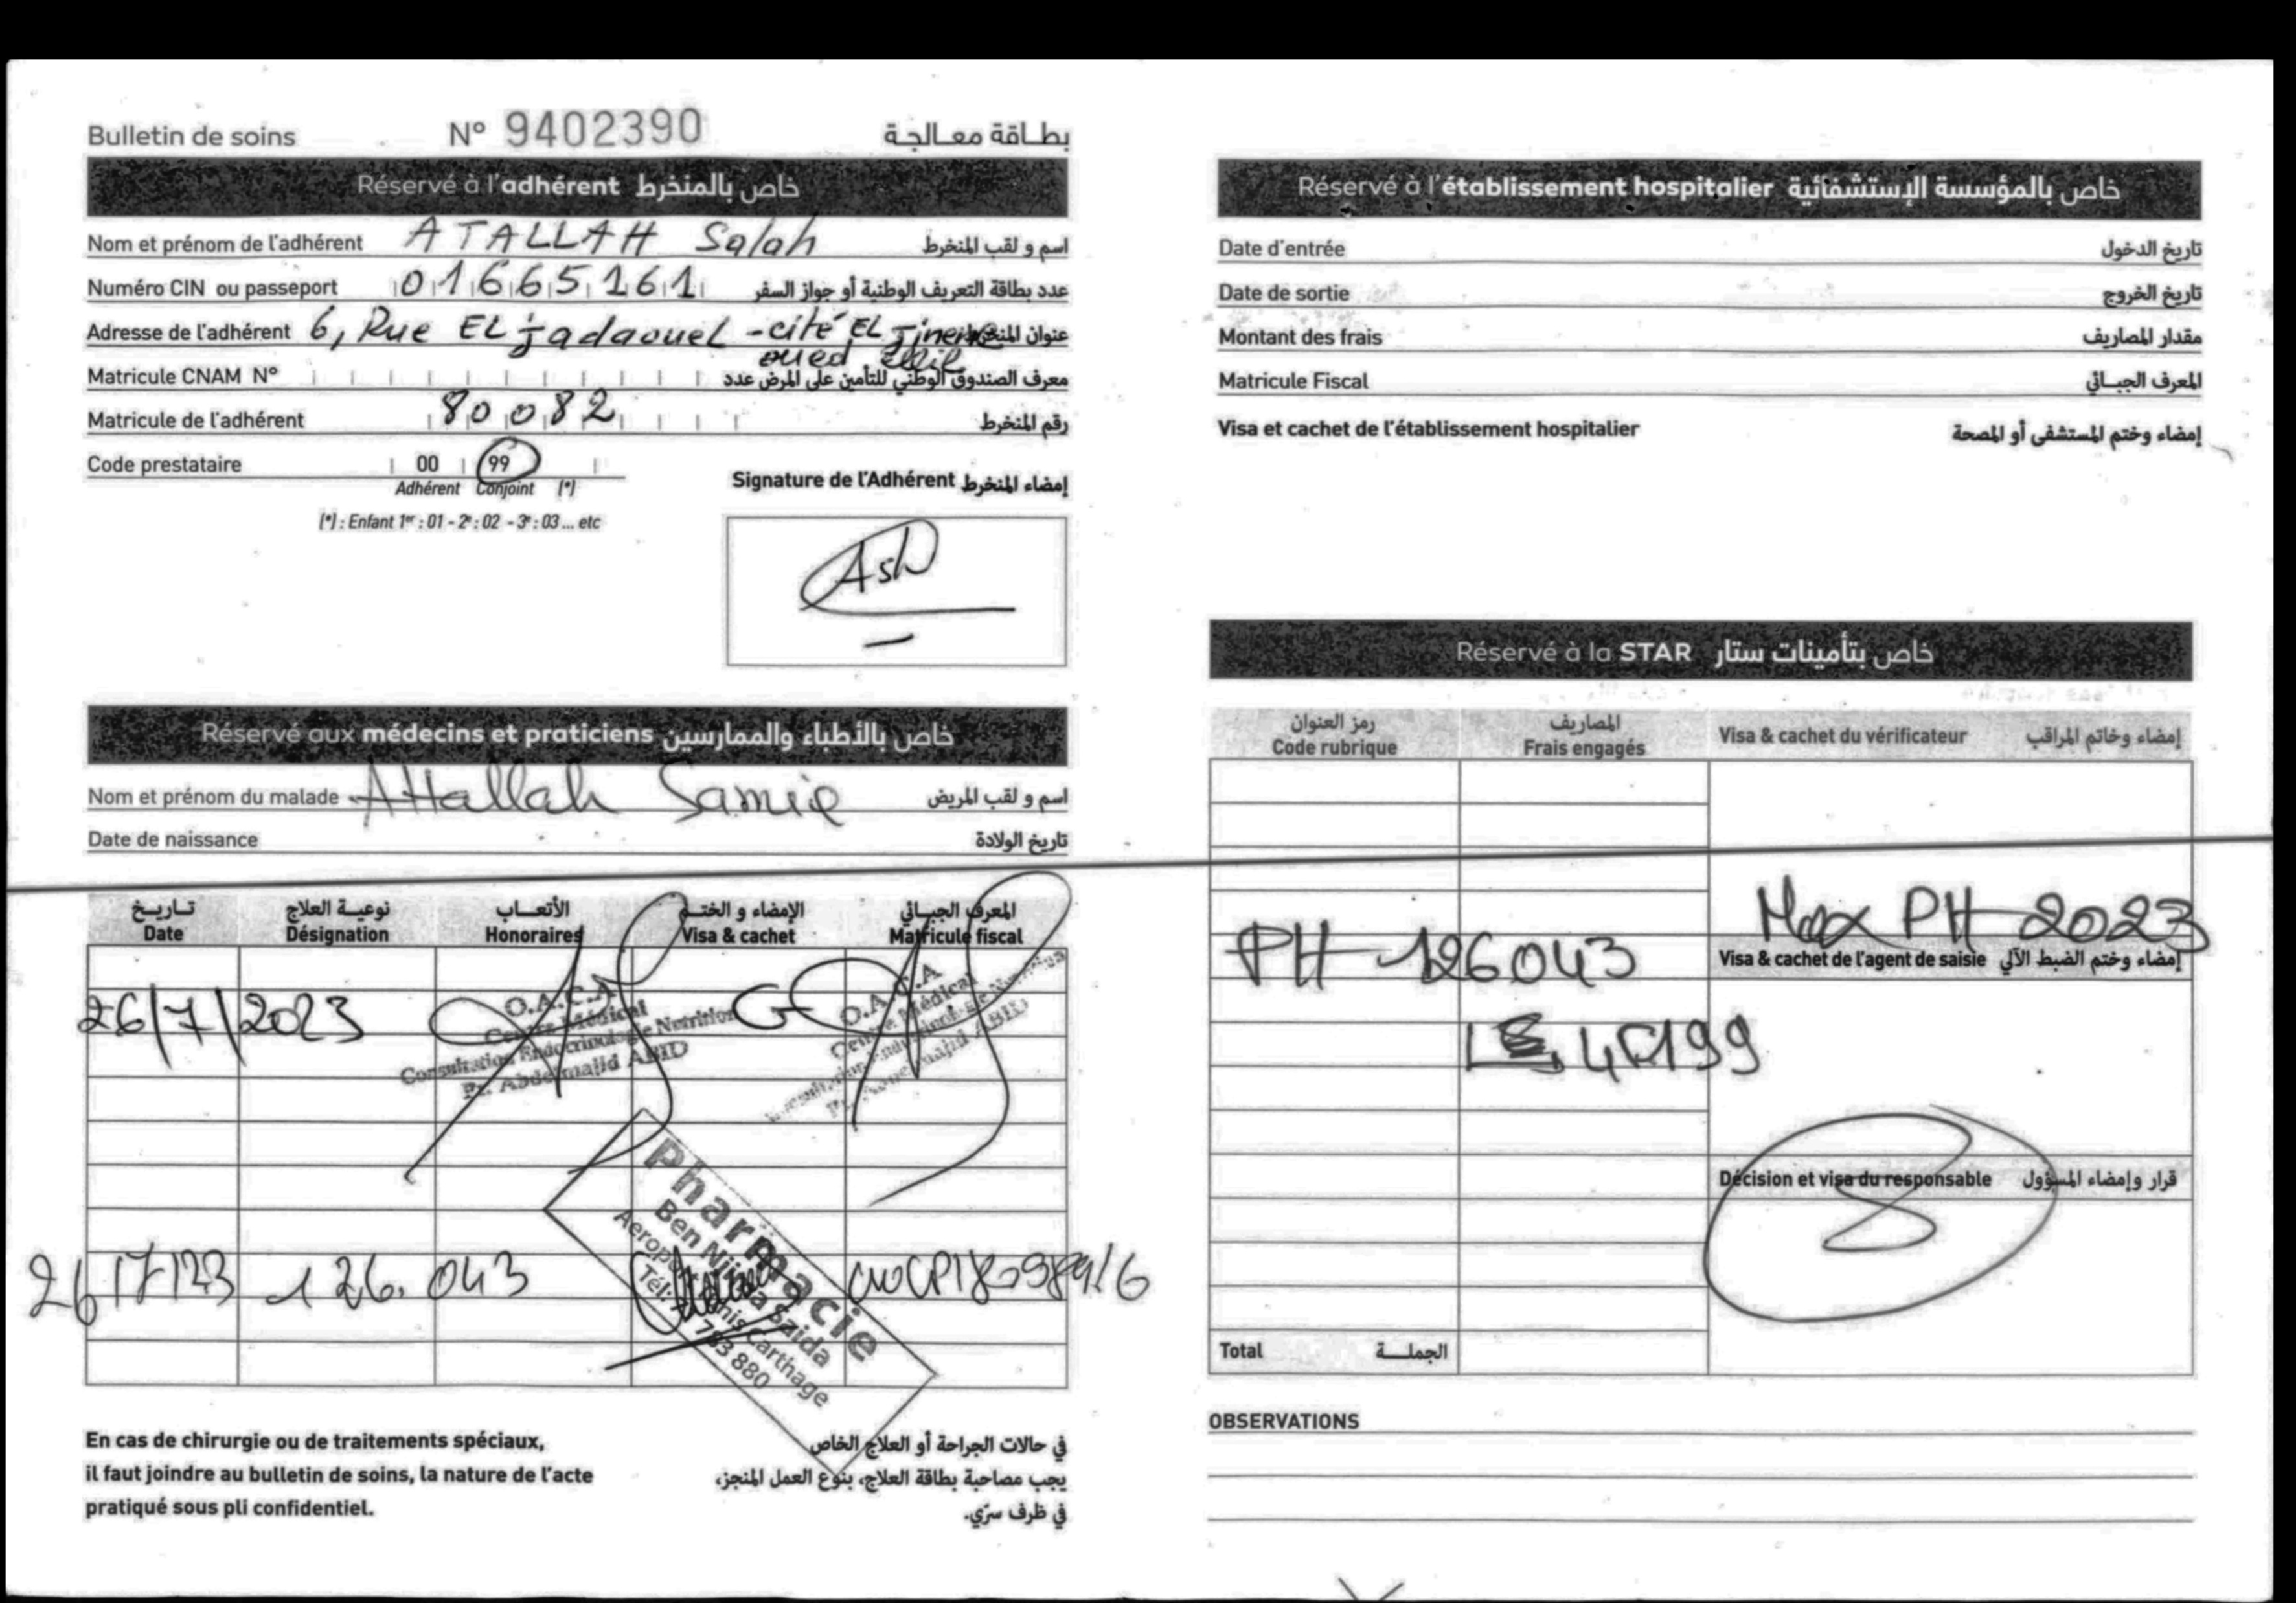 Bulletin de soins N° 9402390 بطاقة معالجة
Réservé à l'adhérent خاص بالمنخرط
Nom et prénom de l'adhérent ATALLAH Salah اسم و لقب المنخرط
Numéro CIN ou passeport 01665161 عدد بطاقة التعريف الوطنية أو جواز السفر
Adresse de l'adhérent 6, Rue EL jadaouel - cité EL عنوان المنخرط
oued
Matricule CNAM N° معرف الصندوق الوطني للتأمين على المرض عدد
Matricule de l'adhérent 80082 رقم المنخرط
Code prestataire 00 99
Adhérent Conjoint (*)
(*) : Enfant 1er : 01 - 2e : 02 - 3e : 03 ... etc
Signature de l'Adhérent إمضاء المنخرط
Réservé aux médecins et praticiens خاص بالأطباء والممارسين
Nom et prénom du malade Attallah Samie اسم و لقب المريض
Date de naissance تاريخ الولادة
تاريخ نوعية العلاج الأتعاب الإمضاء و الختم المعرف الجبائي
Date Désignation Honoraires Visa & cachet Matricule fiscal
26/7/2023
O.A.C.A
Centre Médical
Consultation Endocrinologie Nutrition
Pr. Abdelmajid ABID
O.A.C.A
Centre Médical
Consultation Endocrinologie Nutrition
Pr. Abdelmajid ABID
26/7/23 126.043
Pharmacie
Ben Njima Saida
Aeroport Tunis Carthage
Tél: 71 783 880
En cas de chirurgie ou de traitements spéciaux,
il faut joindre au bulletin de soins, la nature de l'acte
pratiqué sous pli confidentiel.
في حالات الجراحة أو العلاج الخاص
يجب مصاحبة بطاقة العلاج، بنوع العمل المنجز،
في ظرف سرّي.
Réservé à l'établissement hospitalier خاص بالمؤسسة الإستشفائية
Date d'entrée تاريخ الدخول
Date de sortie تاريخ الخروج
Montant des frais مقدار المصاريف
Matricule Fiscal المعرف الجبائي
Visa et cachet de l'établissement hospitalier إمضاء وختم المستشفى أو المصحة
Réservé à la STAR خاص بتأمينات ستار
رمز العنوان المصاريف
Code rubrique Frais engagés Visa & cachet du vérificateur إمضاء وخاتم المراقب
Max PH 2023
PH 126043
Visa & cachet de l'agent de saisie إمضاء وختم الضبط الآلي
Décision et visa du responsable قرار وإمضاء المسؤول
Total الجملة
OBSERVATIONS